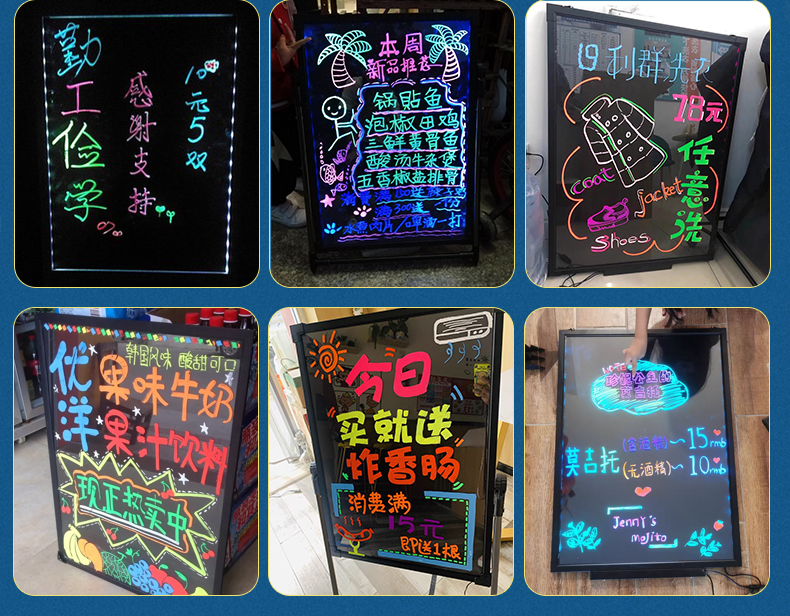 勤工俭学
感谢支持
10元5双
本周
新品推荐
锅贴鱼
泡椒田鸡
三鲜黄骨鱼
酸汤牛杂煲
五香椒盐排骨
消费满
满300送
一份
水煮肉片
一打
利群洗衣
18元
任意洗
coat
jacket
Shoes
韩国风味 酸甜可口
优洋
果味牛奶
果汁饮料
现正热卖中
今日
买就送
炸香肠
消费满
15元
即送1根
莫吉托
(含酒精)~15rmb
(无酒精)~10rmb
Jenny's
mojito